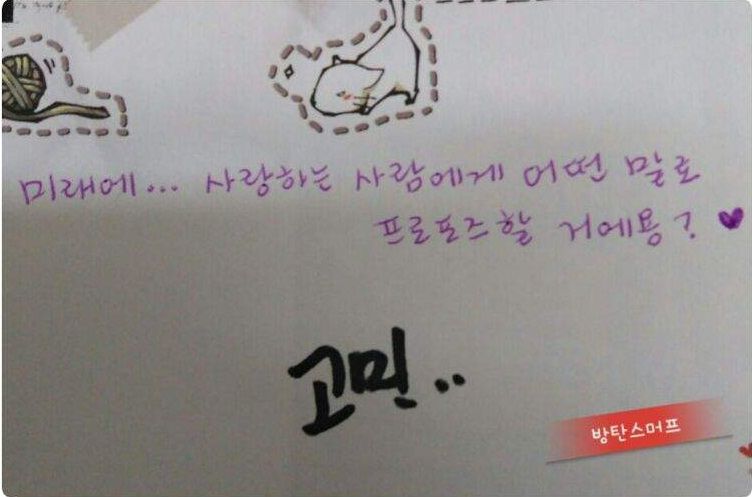 미래에... 사랑하는 사람에게 어떤 말로
프로포즈할 거에용? ♥
고민..
방탄스머프